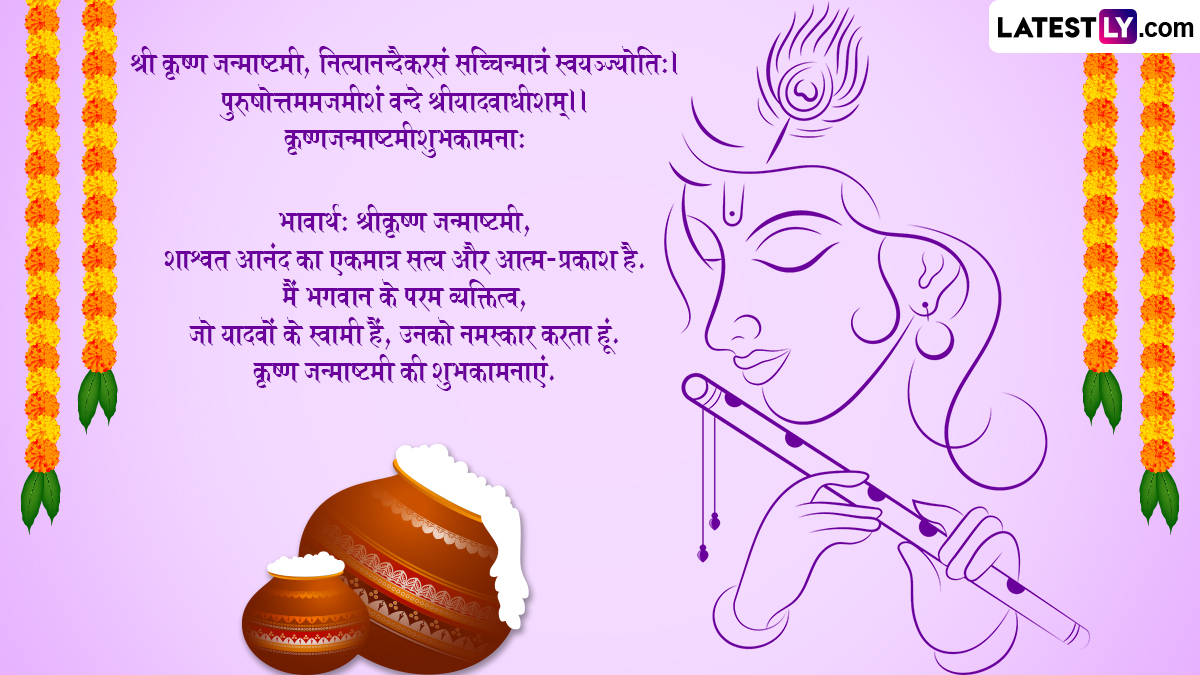 LATESTLY.com
श्री कृष्ण जन्माष्टमी, नित्यानन्दैकरसं सच्चिन्मात्रं स्वयञ्ज्योतिः।
पुरुषोत्तममजमीशं वन्दे श्रीयादवाधीशम्।।
कृष्णजन्माष्टमीशुभकामनाः
भावार्थः श्रीकृष्ण जन्माष्टमी,
शाश्वत आनंद का एकमात्र सत्य और आत्म-प्रकाश है.
मैं भगवान के परम व्यक्तित्व,
जो यादवों के स्वामी हैं, उनको नमस्कार करता हूं.
कृष्ण जन्माष्टमी की शुभकामनाएं.